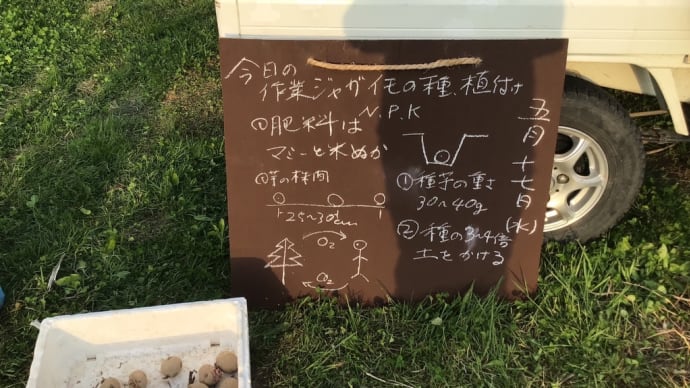 今日の
作業ジャガイモの種、植付け
①肥料は N.P.K
マミーと米ぬか
②芋の株間
25〜30cm
O₂
O₂
①種芋の重さ
30〜40g
②種の3〜4倍
土をかける
五月十七日(水)